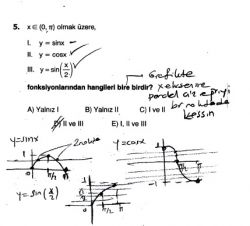 5. x ∈ (0, π) olmak üzere,
I. y = sinx
II. y = cosx ✓
III. y = sin(x/2) ✓
fonksiyonlarından hangileri bire birdir?
Grafikte
x eksenine
paralel çiz eğriyi
bir noktada
kessin
A) Yalnız I B) Yalnız II C) I ve II
D) II ve III E) I, II ve III
y=sinx
2 nokta
y=cosx
y = sin(x/2)
1
0
π/2
π
1
-1
π/2
π
0
π/2
π